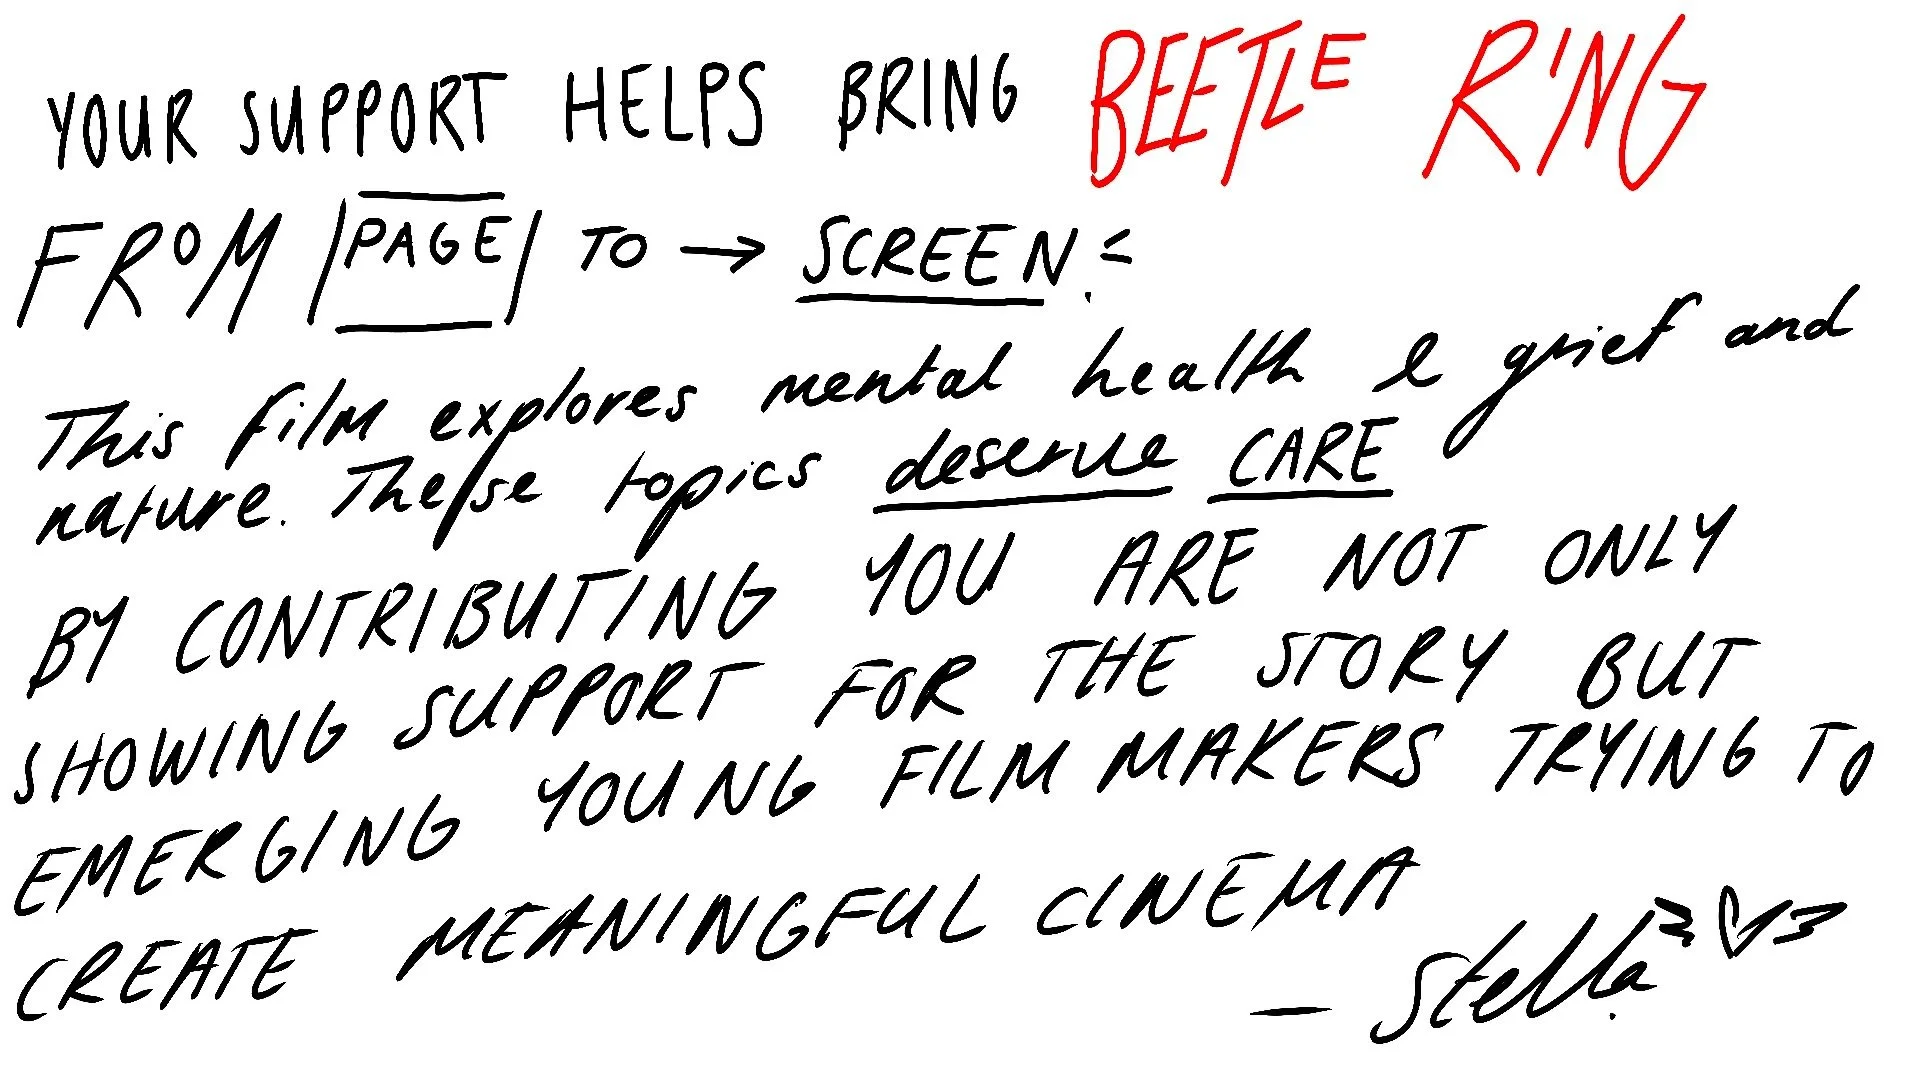 YOUR SUPPORT HELPS BRING BEETLE RING
FROM |PAGE| TO → SCREEN.
This film explores mental health & grief and
nature. These topics deserve CARE
BY CONTRIBUTING YOU ARE NOT ONLY
SHOWING SUPPORT FOR THE STORY BUT
EMERGING YOUNG FILM MAKERS TRYING TO
CREATE MEANINGFUL CINEMA
— Stella